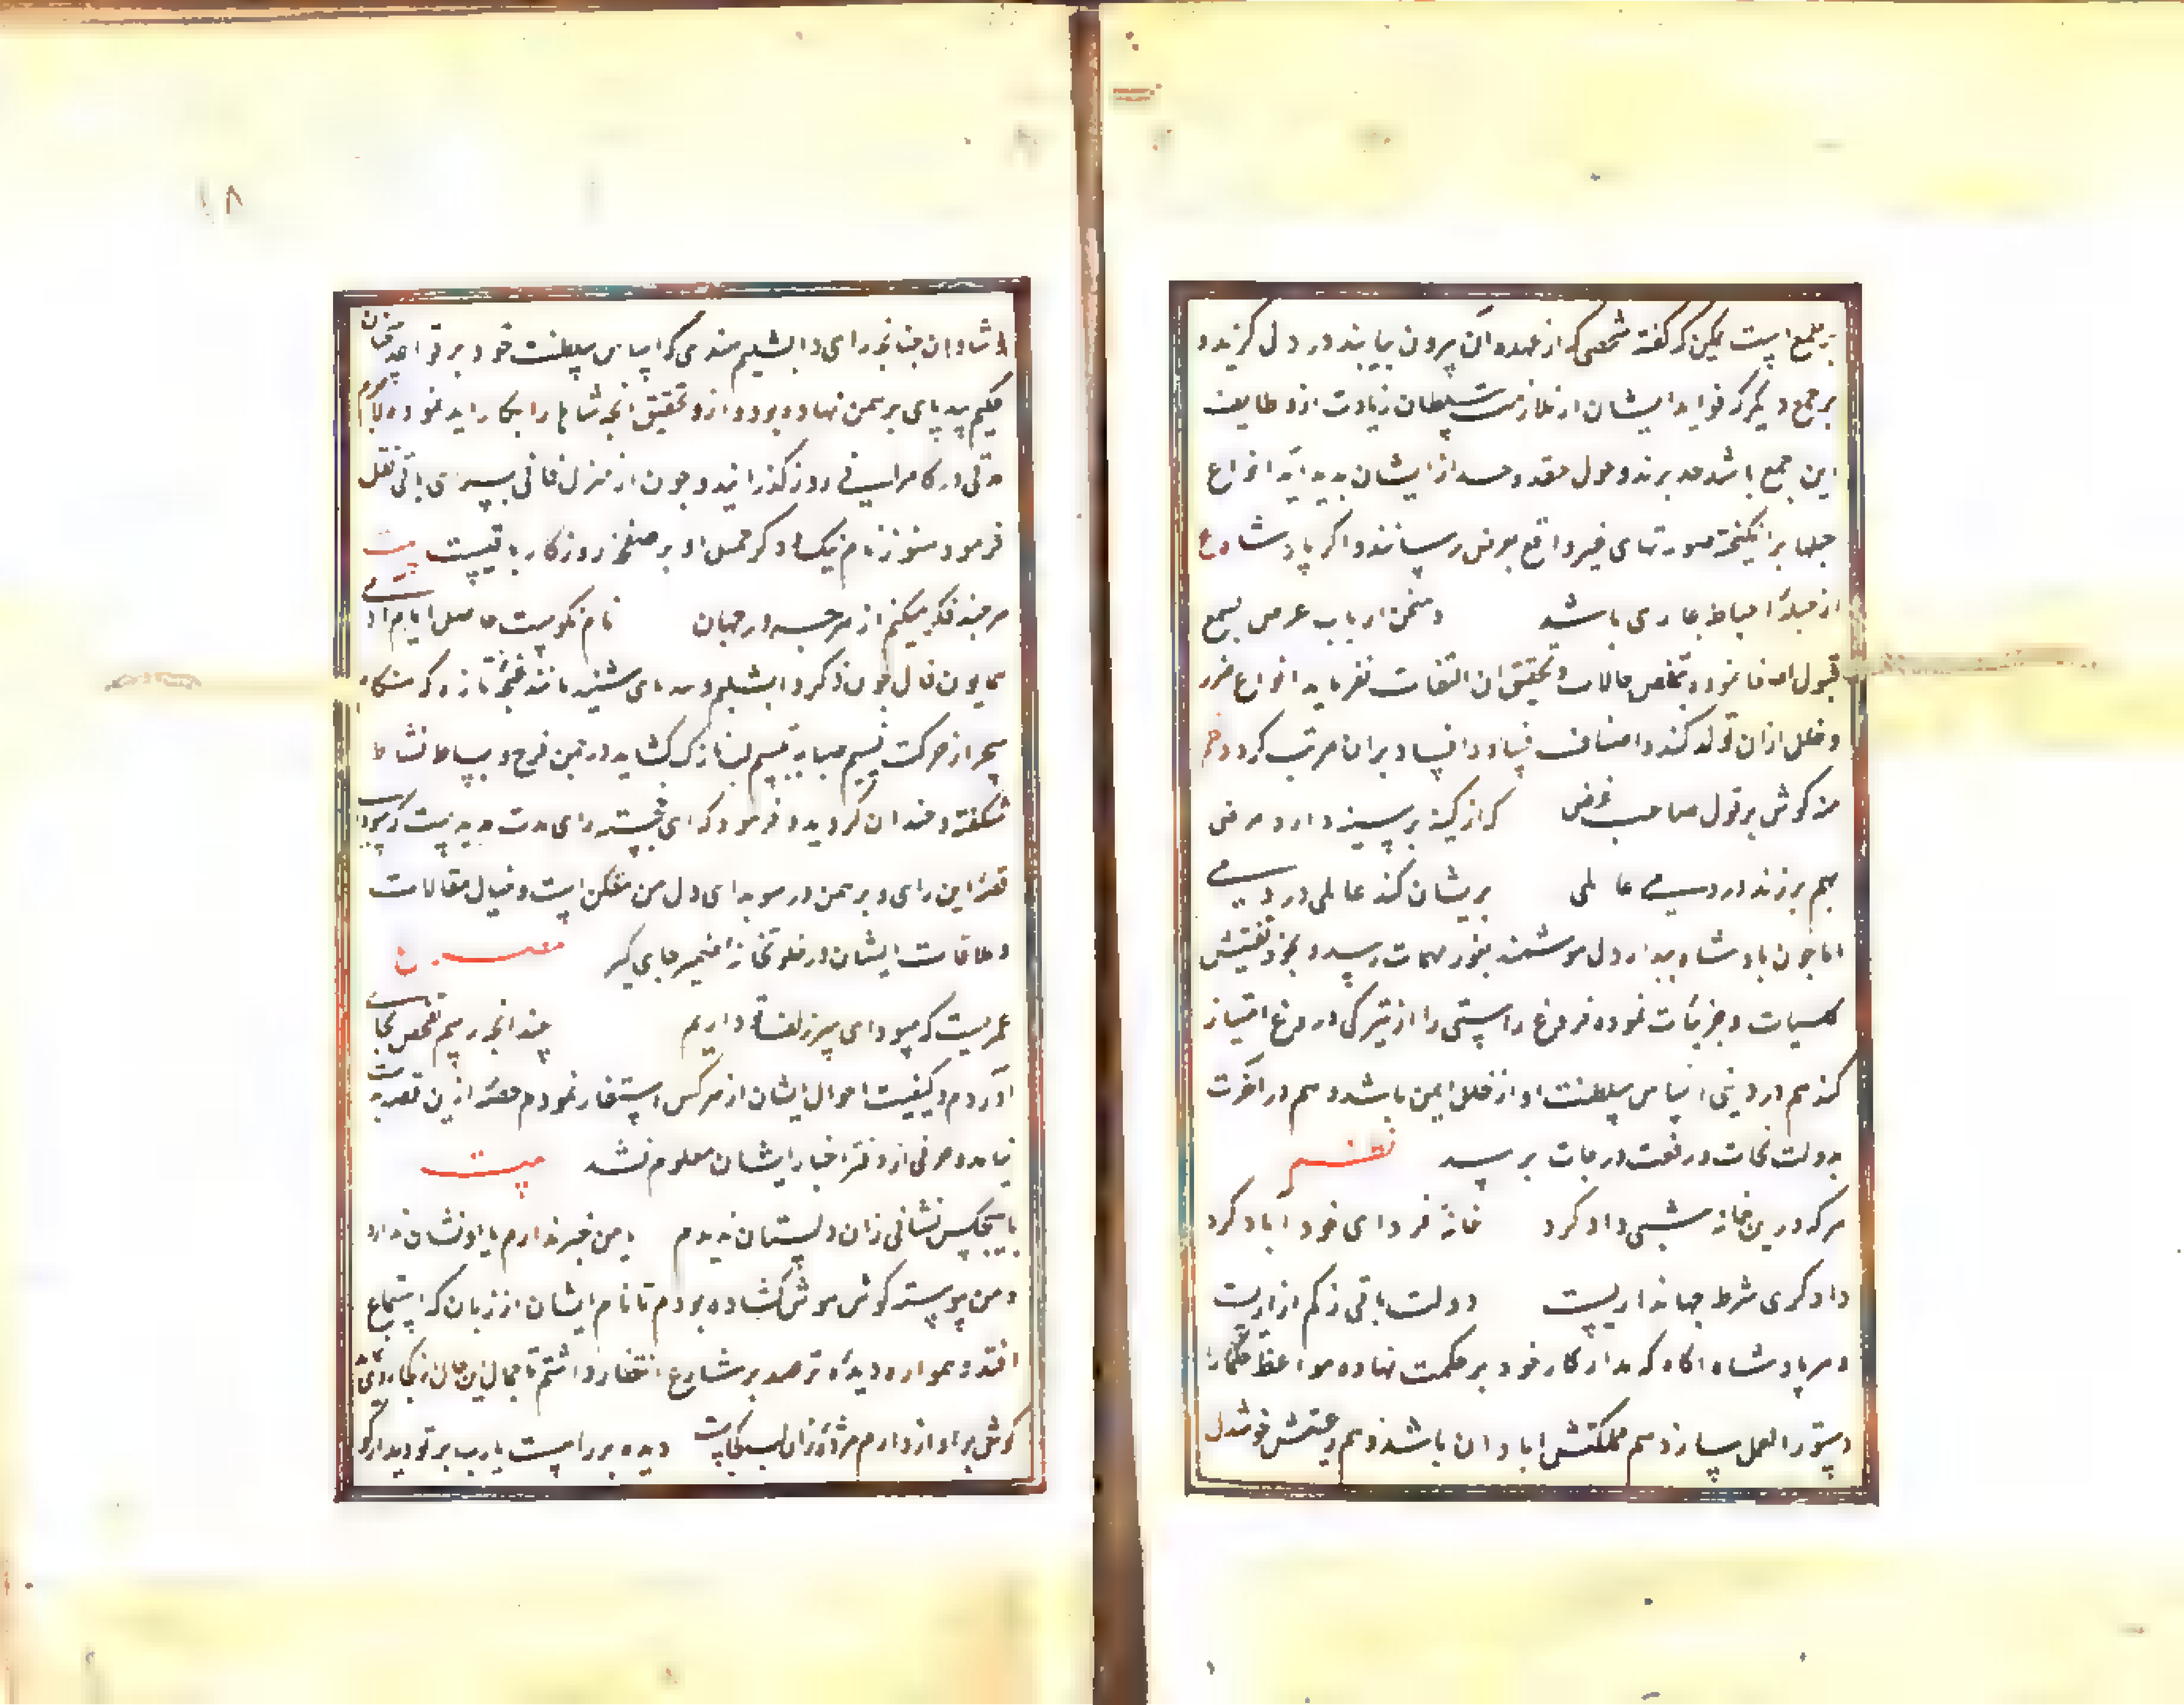 بر طمع است ممکن که گفته شخصی که از عهده آن بیرون نیایند در دل گیرند و
بر جمع دیگر که فواید ایشان از ملازمت سلطان زیادت از وظایف
این جمع باشد حسد برند و حول حقد و حسد از ایشان پدید آید انواع
حیلها برانگیخته صورتهای غیر واقع بعرض رسانند و اگر پادشاه
از حیلهٔ احتیاط عاری باشد و سخن ارباب غرض بسمع
قبول اصغا نموده و بتفحص حالات و تحقیق ان التفات نفرماید انواع ضرر
و خلل ازان تولد کند و اصناف فساد و افساد بران مرتب گردد
منه گوش بر قول صاحب غرض که از کینه بر سینه دارد مرض
بهم بر زند در دمی عالمی پریشان کند عالمی در دمی
اما چون پادشاه بیدار دل هوشمند بغور مهمات رسید و بخود تفتیش
کلیات و جزئیات نموده فروغ راستی را از تیرگی دروغ امتیاز
کند هم در دینی اساس سلطنت او از خلل ایمن باشد و هم در آخرت
بدولت نجات و رفعت درجات برسد نظم
هرکه درین خانه شبی داد کرد خانهٔ فردای خود آباد کرد
دادگری شرط جهانداریست دولت باقی ز کم آزاریست
و هر پادشاه آگاه که مدار کار خود بر حکمت نهاده مواعظ حکما را
دستور العمل سازد هم مملکتش ابادان باشد و هم رعیتش خوشدل
و شادان چنانچه رای دابشلیم هندی که اساس سلطنت خود بر قواعد سخنان
حکیم بیدپای برهمن نهاده بود و ازو تحقیق انچه شاهان را بکار آید نموده لاجرم
مدتی در کامرانی روزگذرانید و چون از منزل فانی بسرای باقی نقل
فرمود هنوز نام نیک و ذکر جمیل او بر صفحهٔ روزگار باقیست بیت
هر چند فکر میکنم از هر چه در جهان نام نکوست حاصل ایام آدمی
همایون فال چون ذکر دابشلیم و بیدپای شنید مانند غنچهٔ تازه که هنگام
سحر از حرکت نسیم صبا به تبسم لب نازک گشاید در چمن فرح و بساط نشاط
شکفته و خندان گردید و فرمود که ای خجسته رای مدت مدیدست که سودای
قصهٔ این رای و برهمن در سویدای دل من متمکن است و خیال مقالات
و ملاقات ایشان در خلوتخانهٔ ضمیر جای گیر مصرع
عمریست که سودای سر زلف تو داریم چندانچه رسم تفحص بجا
آوردم و کیفیت احوال ایشان از هر کس استفسار نمودم حصهٔ ازین قصه بدست
نیامد و حرفی از دفتر اخبار ایشان معلوم نشد بیت
با هیچکس نشانی زان دلستان ندیدم یا من خبر ندارم یا او نشان ندارد
و من پیوسته گوش هوش گشاده بودم تا نام ایشان از زبان که استماع
افتد و همواره دیدهٔ ترصد بر شارع انتظار داشتم تا جمال این حال از کجا روی نماید
گوش بر آواز دارم مژدهٔ زان لب کجاست دیده بر راهست یا رب پرتو دیدار کو